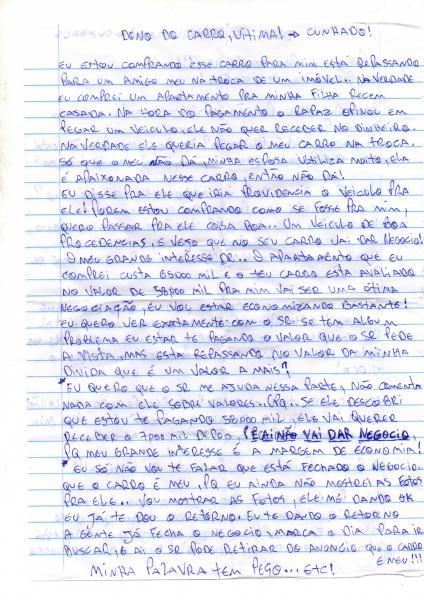 DONO DO CARRO, VITIMA! → CUNHADO!
EU ESTOU COMPRANDO ESSE CARRO PARA MIM ESTÁ REPASSANDO
PARA UM AMIGO MEU NA TROCA DE UM IMÓVEL.. NA VERDADE
EU COMPREI UM APARTAMENTO PRA MINHA FILHA RECEM
CASADA. NA HORA DO PAGAMENTO O RAPAZ OPINOU EM
PEGAR UM VEICULO, ELE NÃO QUER RECEBER NO DINHEIRO.
NA VERDADE ELE QUERIA PEGAR O MEU CARRO NA TROCA.
SÓ QUE O MEU NÃO DÁ, MINHA ESPOSA UTILIZA MUITO, ELA
É APAIXONADA NESSE CARRO, ENTÃO NÃO DÁ!
EU DISSE PRA ELE QUE IRIA PROVIDENCIA O VEICULO PRA
ELE! POREM ESTOU COMPRANDO COMO SE FOSSE PRA MIM,
QUERO PASSAR PRA ELE COISA BOA.. UM VEICULO DE BOA
PROCEDENCIAS, E VEJO QUE NO SEU CARRO VAI DAR NEGOCIO!
O MEU GRANDE INTERESSE DR.. O APARTAMENTO QUE EU
COMPREI CUSTA 65000 MIL E O TEU CARRO ESTA AVALIADO
NO VALOR DE 58000 MIL PRA MIM VAI SER UMA ÓTIMA
NEGOCIAÇÃO, EU VOU ESTAR ECONOMIZANDO BASTANTE!
EU QUERO VER EXATAMENTE COM O SR. SE TEM ALGUM
PROBLEMA EU ESTAR TE PAGANDO O VALOR QUE O SR PEDE
A VISTA, MAS ESTA REPASSANDO NO VALOR DA MINHA
DIVIDA QUE É UM VALOR A MAIS?
* EU QUERO QUE O SR ME AJUDA NESSA PARTE, NÃO COMENTA
NADA COM ELE SOBRE VALORES.. (PQ.. SE ELE DESCOBRI
QUE ESTOU TE PAGANDO 58000 MIL, ELE VAI QUERER
RECEBER O 7000 MIL DEPOIS, E AI NÃO VAI DAR NEGOCIO,
PQ MEU GRANDE INTERESSE É A MARGEM DE ECONOMIA!
* EU SÓ NÃO VOU TE FALAR QUE ESTÁ FECHADO O NEGOCIO..
QUE O CARRO É MEU, PQ EU AINDA NÃO MOSTREI AS FOTOS
PRA ELE.. VOU MOSTRAR AS FOTOS, ELE ME DANDO OK
EU JÁ TE DOU O RETORNO. EU TE DANDO O RETORNO
A GENTE JÁ FECHA O NEGOCIO, MARCA O DIA PARA IR
BUSCAR, E AI O SR PODE RETIRAR DO ANUNCIO QUE O CARRO
É MEU!!!
MINHA PALAVRA TEM PESO... ETC!